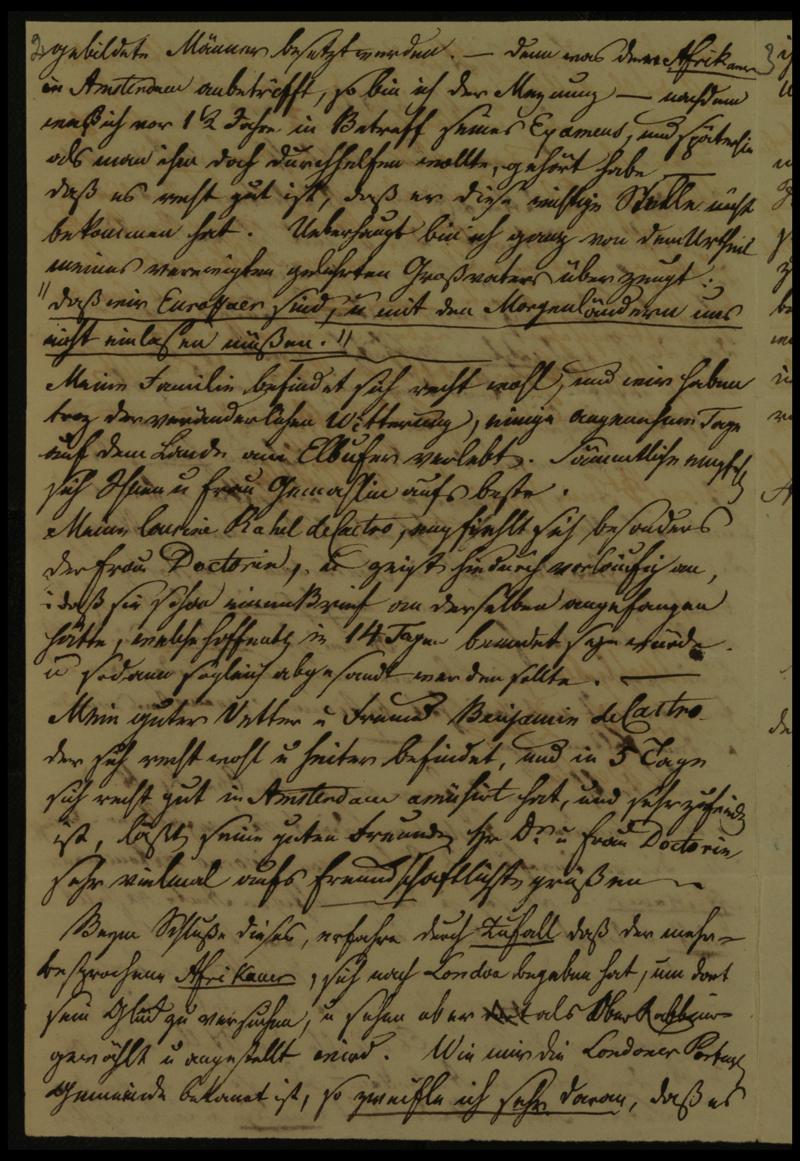 gebildete Männer besetzt werden. — Denn was den Afrikaner
in Amsterdam anbetrifft, so bin ich der Meynung — nachdem
was ich vor 1½ Jahre in Betreff seines Examens, und späterhin
als man ihm doch durchhelfen wollte, gehört habe —
daß es recht gut ist, daß er diese wichtige Stelle nicht
bekommen hat. Ueberhaupt bin ich ganz von dem Urtheil
meines verewigten gelehrten Großvaters überzeugt:
"daß wir Europaer sind, u mit den Morgenländern uns
nicht einlaßen müßen."
Meine Familie befindet sich recht wohl, und wir haben
troz der veränderlichen Witterung, einige angenehme Tage
auf dem Lande am Elbufer verlebt. Sämmtliche empf
sich Ihnen u Frau Gemahlin aufs beste.
Meine Cousine Rahel de Castro, empfiehlt sich besonders
der Frau Doctorin, u zeigt hiedurch vorläufig an,
daß sie schon einen Brief an derselben angefangen
hätte, welche hoffentl in 14 Tagen beendet seyn würde
u sodann sogleich abgesandt werden sollte. —
Mein guter Vetter u Freund Benjamin de Castro
der sich recht wohl u heiter befindet, und in 5 Tage
sich recht gut in Amsterdam amüsirt hat, und sehr zufried
ist, läßt seine guten Freunde, Hr Dr u Frau Doctorin
sehr vielmal aufs freundschaftlichste grüßen
Beym Schluße dieses, erfahre durch Zufall daß der mehr-
besprochene Afrikaner, sich nach London begeben hat, um dort
sein Glück zu versuchen, u sehen ob er als Ober Rabbiner
gewählt u angestellt wird. Wie mir die Londoner Portug
Gemeinde bekannt ist, so zweifle ich sehr daran, daß es